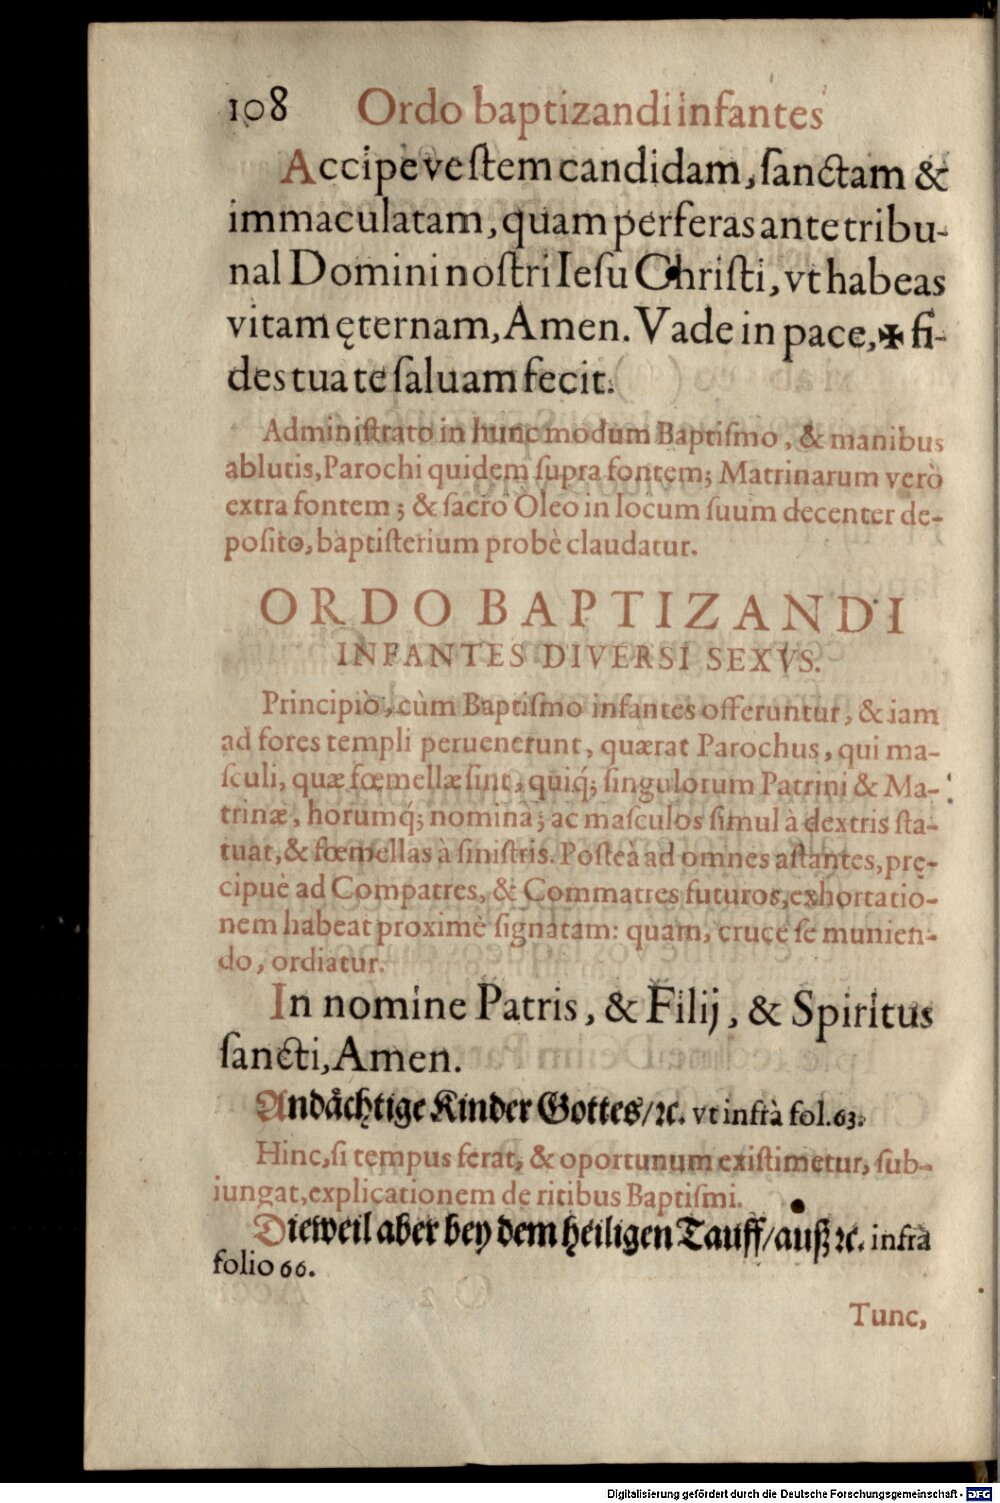 108 Ordo baptizandi infantes
Accipe veſtem candidam, ſanctam &
immaculatam, quam perferas ante tribu-
nal Domini noſtri Ieſu Chriſti, vt habeas
vitam ęternam, Amen. Vade in pace, ✠ fi-
des tua te ſaluam fecit.
Adminiſtrato in hunc modum Baptiſmo, & manibus
ablutis, Parochi quidem ſupra fontem; Matrinarum verò
extra fontem; & ſacro Oleo in locum ſuum decenter de-
poſito, baptiſterium probè claudatur.
ORDO BAPTIZANDI
INFANTES DIVERSI SEXVS.
Principiò, cùm Baptiſmo infantes offeruntur, & iam
ad fores templi peruenerunt, quærat Parochus, qui ma-
ſculi, quæ fœmellæ ſint, quiq́; ſingulorum Patrini & Ma-
trinæ, horumq́; nomina; ac maſculos ſimul à dextris ſta-
tuat, & fœmellas à ſiniſtris. Poſteà ad omnes aſtantes, prę-
cipuè ad Compatres, & Commatres futuros, exhortatio-
nem habeat proximè ſignatam: quam, cruce ſe munien-
do, ordiatur.
In nomine Patris, & Filij, & Spiritus
ſancti, Amen.
Andåchtige Kinder Gottes/ꝛc. vt infrà fol. 63.
Hinc, ſi tempus ferat, & oportunum exiſtimetur, ſub-
iungat, explicationem de ritibus Baptiſmi.
Dieweil aber bey dem heiligen Tauff/ auß ꝛc. infrà
folio 66.
Tunc,
Digitalisierung gefördert durch die Deutsche Forschungsgemeinschaft - DFG